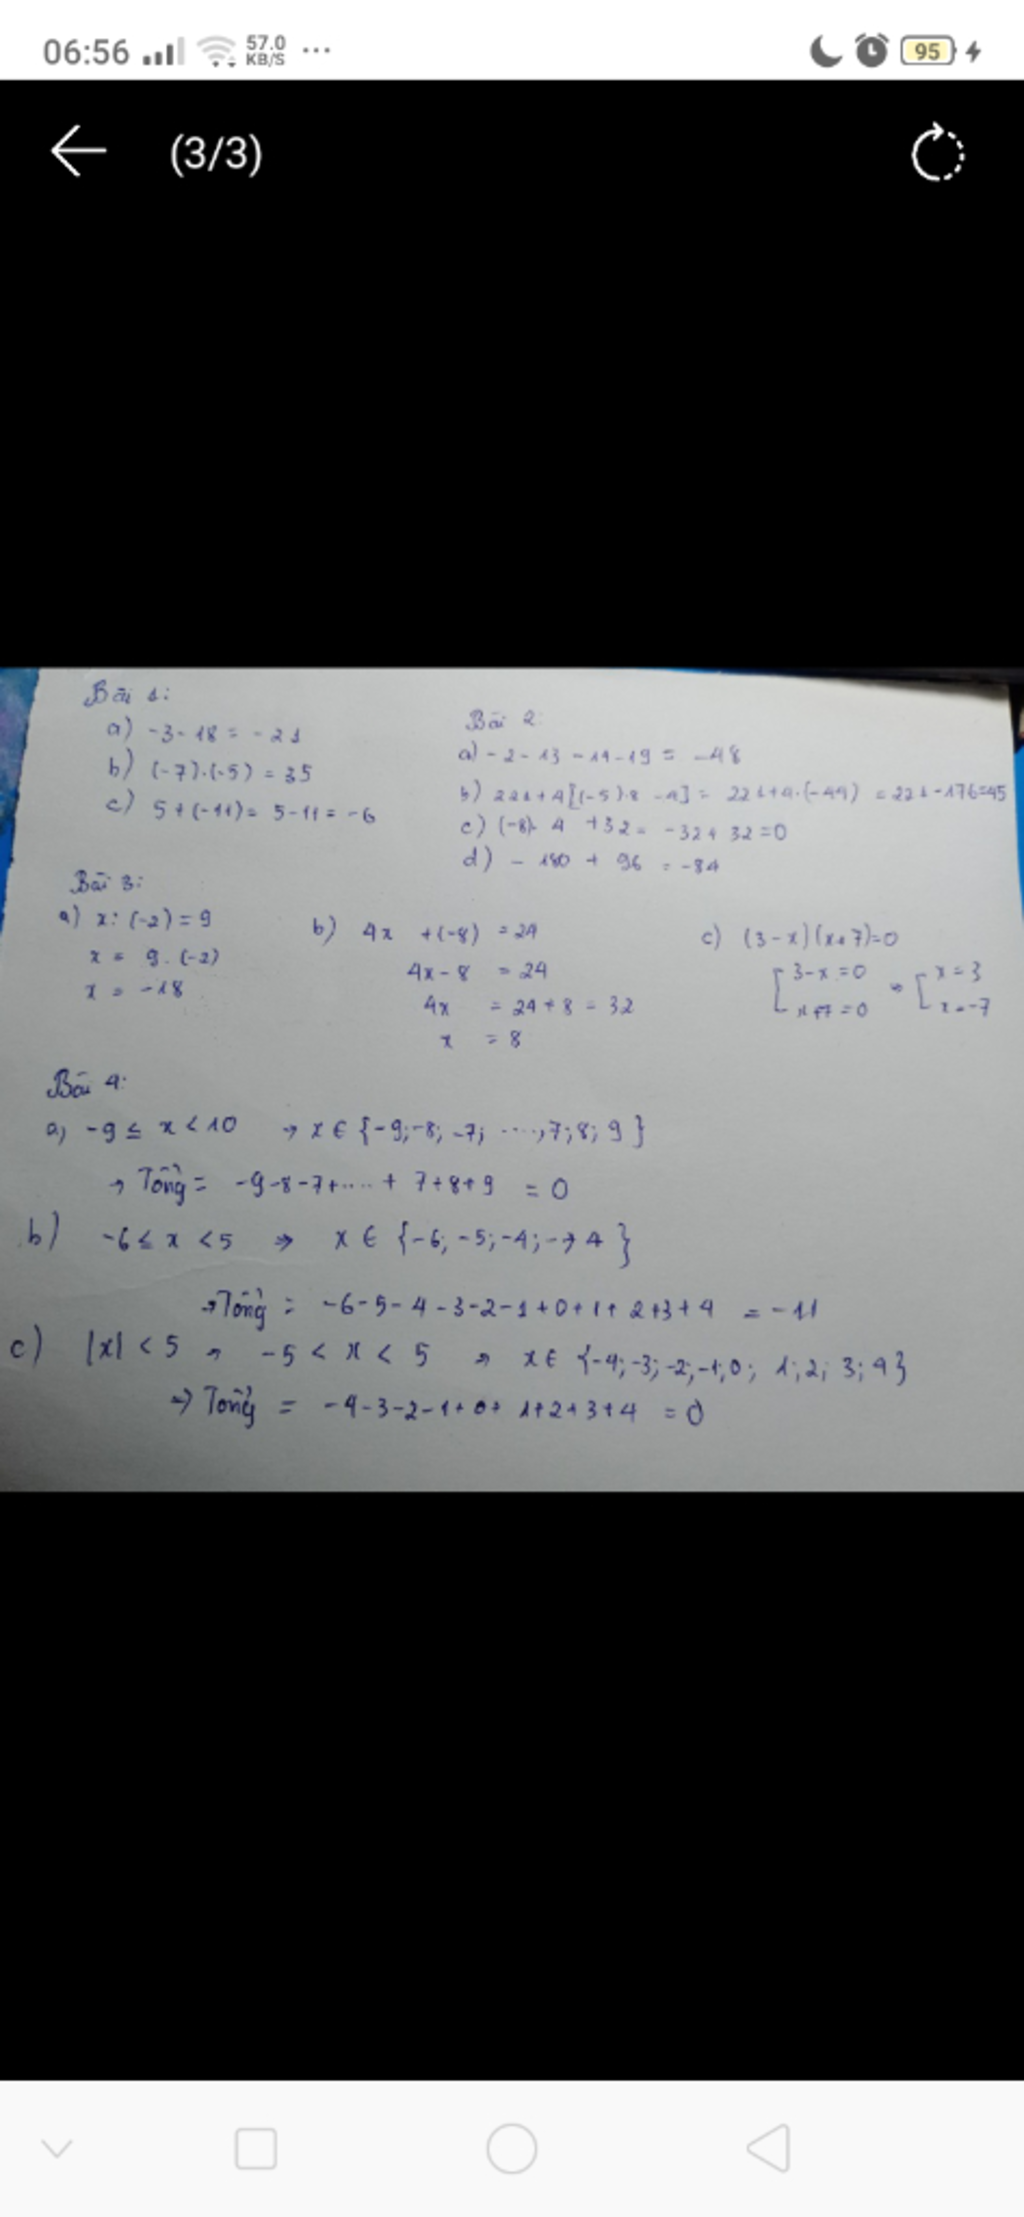 06:56
57.0
KB/S
95
(3/3)
Bài 1:
a) -3-18 = -21
b) (-7).(-5) = 35
c) 5+(-11)= 5-11 = -6
Bài 2:
a) -2-13-14-19 = -48
b) 221+4[(-5).8 -4] = 221+4.(-44) = 221-176=45
c) (-8). 4 +32 = -32+32=0
d) - 180 + 96 = -84
Bài 3:
a) x: (-2) = 9
x = 9.(-2)
x = -18
b) 4x +(-8) = 24
4x-8 = 24
4x = 24+8 = 32
x = 8
c) (3-x)(x+7)=0
[3-x=0 ⇒ [x=3
x+7=0 x=-7
Bài 4:
a) -9 ≤ x < 10 → x ∈ {-9;-8; -7; ....,7; 8; 9}
→ Tổng = -9-8-7+.....+ 7+8+9 = 0
b) -6 ≤ x < 5 ⇒ x ∈ {-6; -5; -4; → 4}
→ Tổng = -6-5-4-3-2-1+0+1+2+3+4 = -11
c) |x| < 5 → -5 < x < 5 → x ∈ {-4; -3; -2; -1; 0; 1; 2; 3; 4}
⇒ Tổng = -4-3-2-1+0+1+2+3+4 = 0